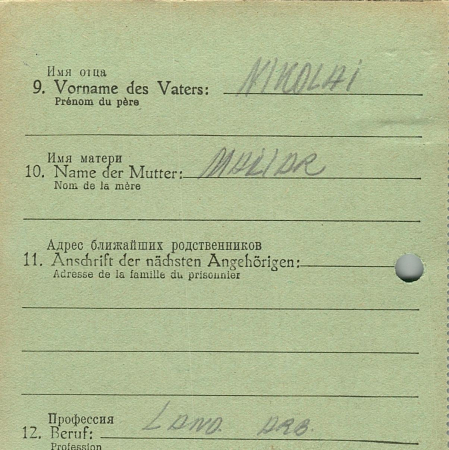 Имя отца
9. Vorname des Vaters: NIKOLAI
Prénom du père
Имя матери
10. Name der Mutter: MALIAR
Nom de la mère
Адрес ближайших родственников
11. Anschrift der nächsten Angehörigen:
Adresse de la famille du prisonnier
Профессия
12. Beruf: LAND. ARB.
Profession